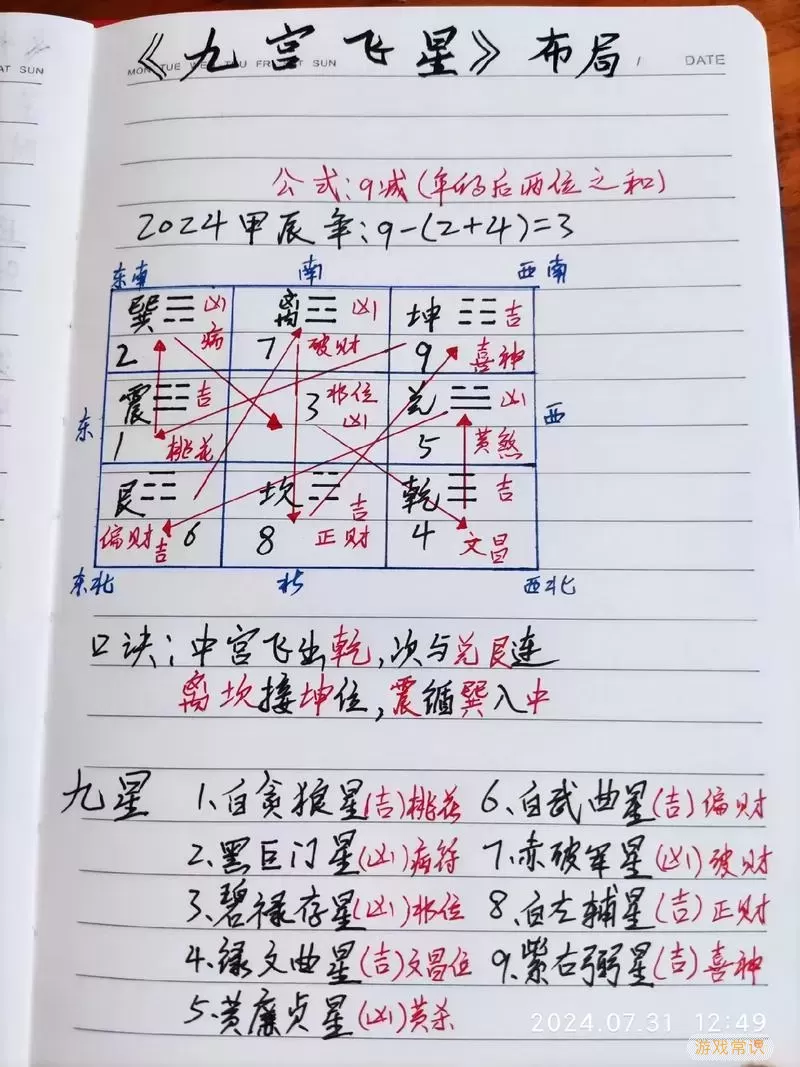 《九宫飞星》布局
AT SUN
MON TUE WED THU FRI SAT SUN
DATE
公式:9减(年的后两位之和)
2024甲辰年:9-(2+4)=3
东南 南 西南
巽☴凶 离☲凶 坤☷吉
2 病 7 破财 9 喜神
震☳吉 3 邪位 兑☱凶
东 凶 西
1 桃花 5 黄煞
艮☶ 坎☵吉 乾☰吉
偏财吉 6 8 正财 4 文昌
东北 北 西北
口诀:中宫飞出乾,次与兑艮连
离坎接坤位,震循巽入中
九星 1、白贪狼星(吉)桃花 6、白武曲星(吉)偏财
2、黑巨门星(凶)病符 7、赤破军星(凶)破财
3、碧禄存星(凶)邪位 8、白左辅星(吉)正财
4、绿文曲星(吉)文昌位 9、紫右弼星(吉)喜神
5、黄廉贞星(凶)黄杀
2024.07.31 12:49
游戏常识